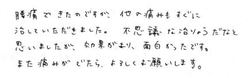 腰痛できたのですが、他の痛みもすぐに
治していただきました。不思議な治りょうだなと
思いましたが、効果があり、面白かったです。
また痛みがでたら、よろしくお願いします。